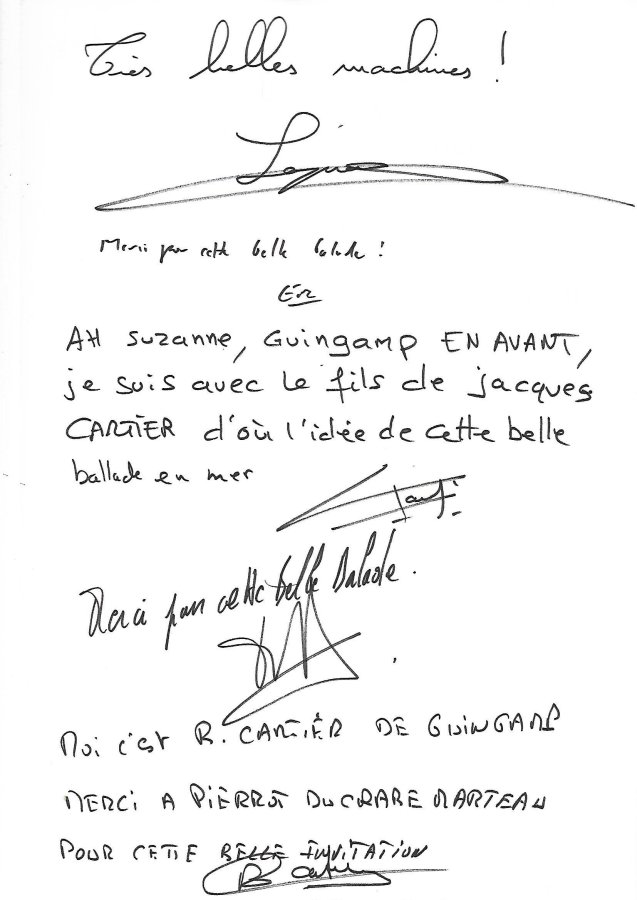 Très belles machines !
Merci pour cette belle balade !
AH Suzanne, Guingamp EN AVANT,
je suis avec le fils de jacques
CARTIER d'où l'idée de cette belle
ballade en mer
Merci pour cette belle Balade.
Moi c'est R. CARTIER DE GUINGAMP
MERCI A PIERROT DU CRABE MARTEAU
POUR CETTE BELLE INVITATION